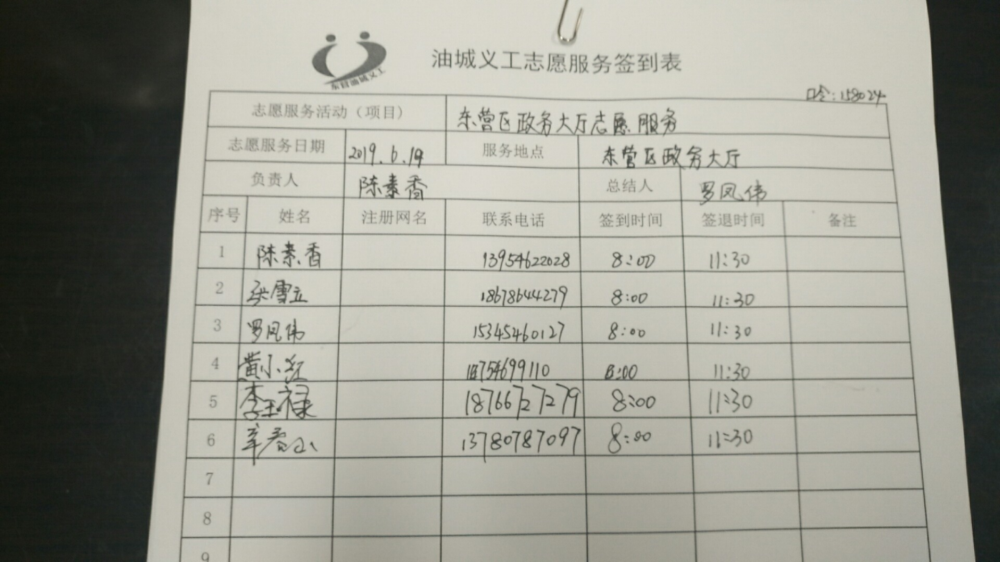 东营油城义工
油城义工志愿服务签到表
口令:158024
志愿服务活动(项目) 东营区政务大厅志愿服务
志愿服务日期 2019.6.19 服务地点 东营区政务大厅
负责人 陈素香 总结人 罗凤伟
序号 姓名 注册网名 联系电话 签到时间 签退时间 备注
1 陈素香 13954622028 8:00 11:30
2 张雪立 18678644279 8:00 11:30
3 罗凤伟 15345460127 8:00 11:30
4 黄小红 8:00 11:30
5 李玉禄 18766727279 8:00 11:30
6 13780787097 8:00 11:30
7
8
9